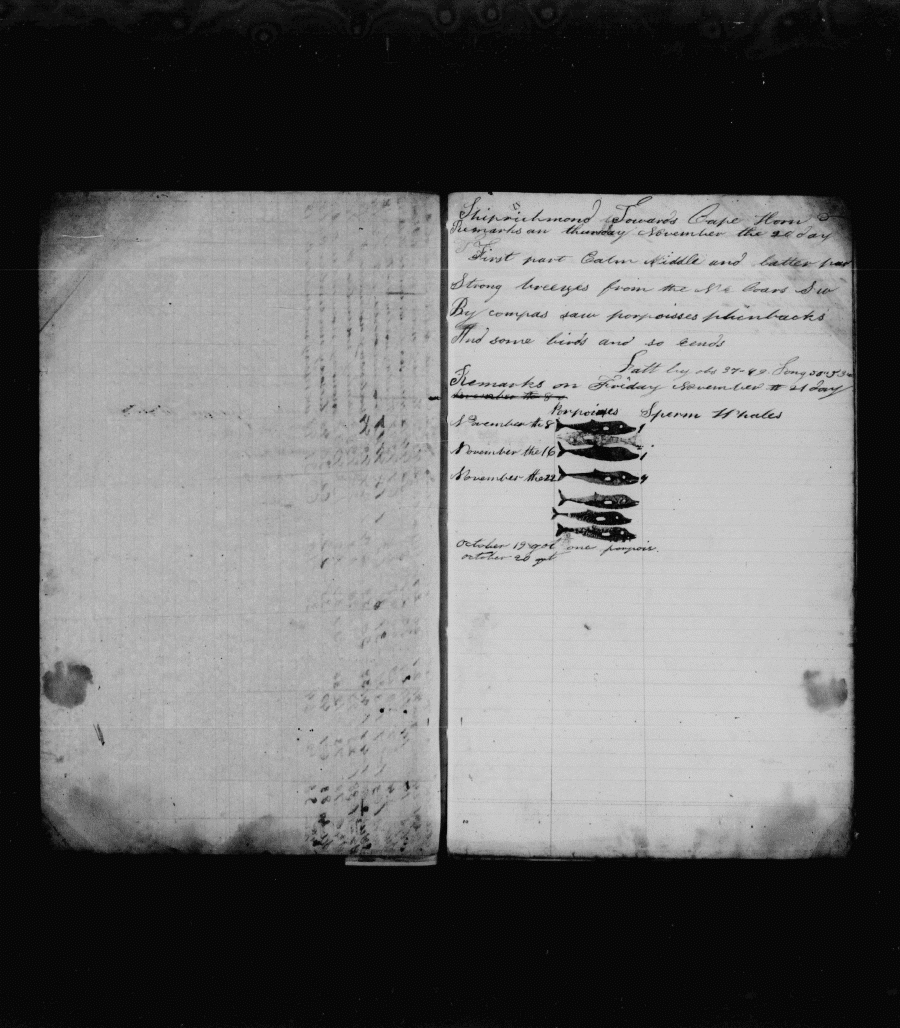 Ship richmond Towards Cape Horn
Remarks on thursday November the 20 day
First part Calm Middle and latter par
Strong breezes from the Ne Coars Sw
By compas saw porpoisses phinbacks
And some birds and so Eends
Latt by obs 37-49 Long
Remarks on Friday November th 21 day
November the 8
Porpoises Sperm Whales
November the 8 1
November the 16 1
November the 22 4
October 19 got one porpois.
october 20 got